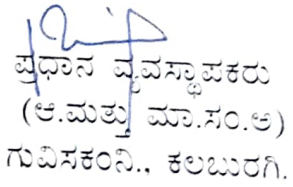 ಪ್ರಧಾನ ವ್ಯವಸ್ಥಾಪಕರು
(ಆ.ಮತ್ತು ಮಾ.ಸಂ.ಅ)
ಗುವಿಸಕಂನಿ., ಕಲಬುರಗಿ.